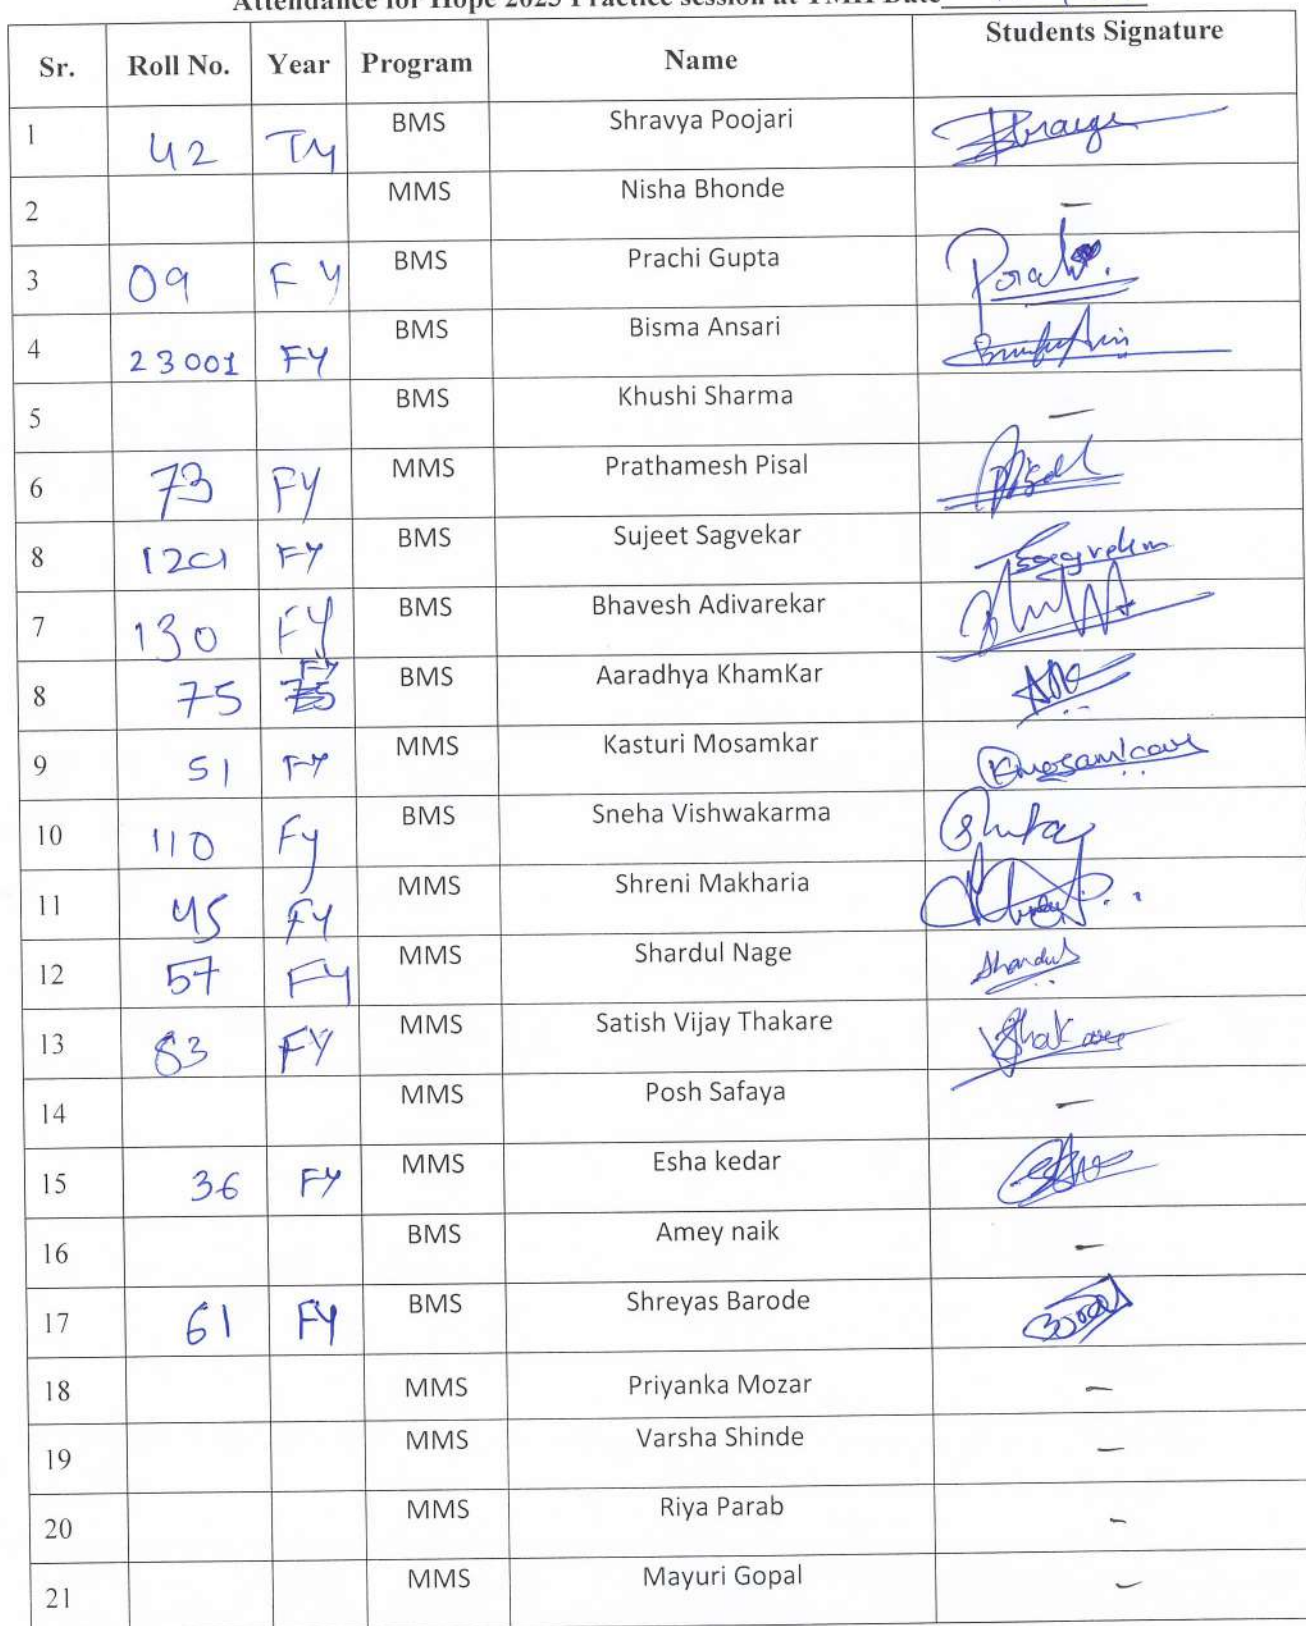 Attendance for Hope 2023 Practice session at TMH Date
Sr. Roll No. Year Program Name Students Signature
1 42 TY BMS Shravya Poojari
2 MMS Nisha Bhonde –
3 09 FY BMS Prachi Gupta
4 23001 FY BMS Bisma Ansari
5 BMS Khushi Sharma –
6 73 FY MMS Prathamesh Pisal Pisal
8 FY BMS Sujeet Sagvekar
7 130 FY BMS Bhavesh Adivarekar
8 75 FY BMS Aaradhya KhamKar
9 51 FY MMS Kasturi Mosamkar Kmosamkar
10 110 Fy BMS Sneha Vishwakarma
11 45 FY MMS Shreni Makharia
12 57 FY MMS Shardul Nage Shardul
13 83 FY MMS Satish Vijay Thakare
14 MMS Posh Safaya –
15 36 FY MMS Esha kedar
16 BMS Amey naik –
17 61 FY BMS Shreyas Barode
18 MMS Priyanka Mozar –
19 MMS Varsha Shinde –
20 MMS Riya Parab –
21 MMS Mayuri Gopal –